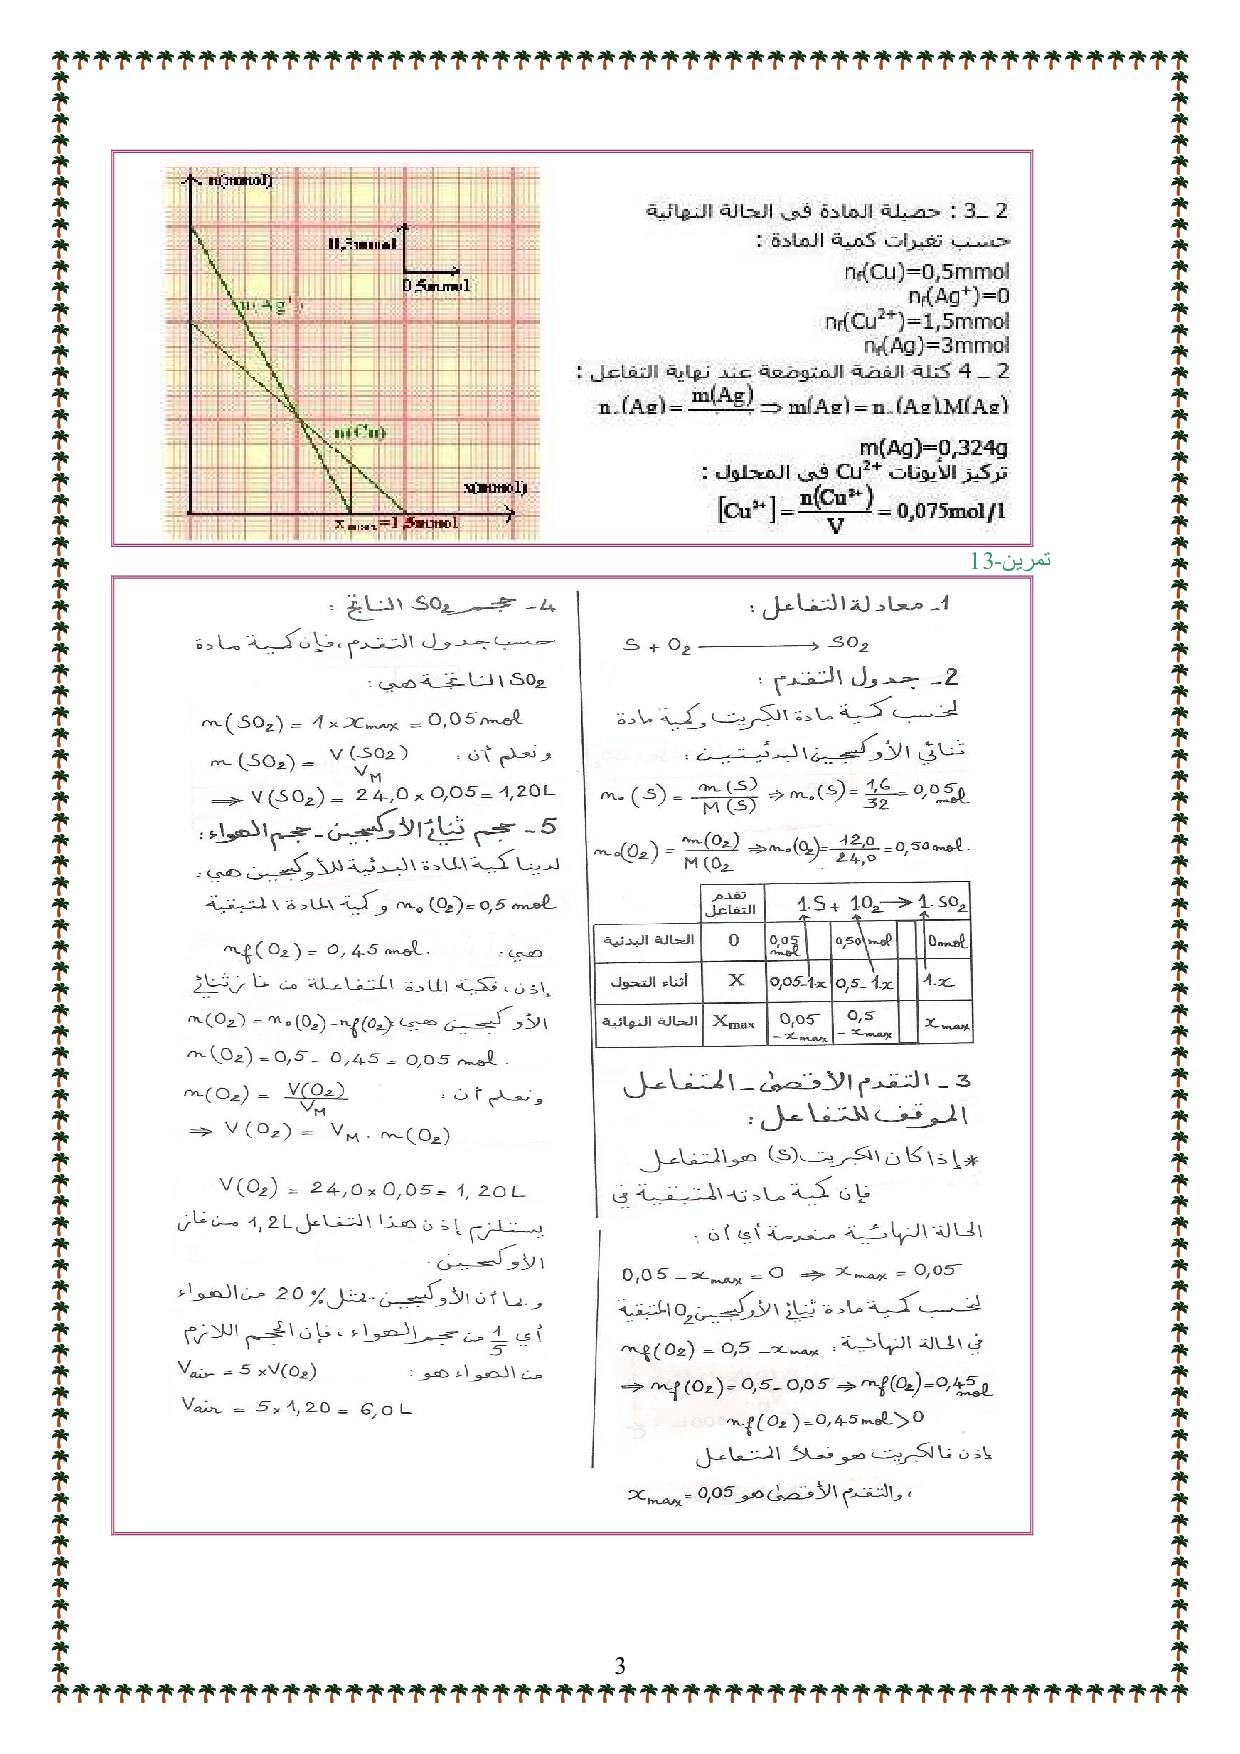 n(mmol)
0,5mmol
0.5mmol
n(Ag⁺)
n(Cu)
x(mmol)
x max=1,5mmol
2 _3 : حصيلة المادة في الحالة النهائية
حسب تغيرات كمية المادة :
nf(Cu)=0,5mmol
nf(Ag⁺)=0
nf(Cu²⁺)=1,5mmol
nf(Ag)=3mmol
2 _ 4 كتلة الفضة المتوضعة عند نهاية التفاعل :
n.(Ag)= m(Ag)/ ⇒ m(Ag)=n.(Ag).M(Ag)
m(Ag)=0,324g
تركيز الأيونات Cu²⁺ في المحلول :
[Cu²⁺]= n(Cu²⁺)/V = 0,075mol/l
تمرين-13
1- معادلة التفاعل :
S + O₂ ⟶ SO₂
2- جدول التقدم :
لنحسب كمية مادة الكبريت وكمية مادة
ثنائي الأوكسجين البدئيتين :
n₀(S) = m(S)/M(S) ⇒ n₀(S) = 1,6/32 = 0,05 mol
n₀(O₂) = m(O₂)/M(O₂ ⇒ n₀(O₂) = 12,0/24,0 = 0,50 mol.
تقدم التفاعل 1.S + 1O₂ → 1.SO₂
الحالة البدئية 0 0,05 mol 0,50 mol 0 mol
أثناء التحول X 0,05-1x 0,5-1.x 1.x
الحالة النهائية Xmax 0,05 - xmax 0,5 - xmax xmax
3 - التقدم الأقصى - المتفاعل
الموقف للتفاعل :
* إذا كان الكبريت (S) هو المتفاعل
فإن كمية مادته المتبقية في
الحالة النهائية منعدمة أي أن :
0,05 - xmax = 0 ⇒ xmax = 0,05
لنحسب كمية مادة ثنائي الأوكسجين O₂ المتبقية
في الحالة النهائية : nf(O₂) = 0,5 - xmax
⇒ nf(O₂) = 0,5 - 0,05 ⇒ nf(O₂) = 0,45 mol
nf(O₂) = 0,45 mol > 0
إذن فالكبريت هو فعلا المتفاعل
، والتقدم الأقصى هو xmax = 0,05
4- حجم SO₂ الناتج :
حسب جدول التقدم، فإن كمية مادة
SO₂ الناتجة هي :
n(SO₂) = 1 × xmax = 0,05 mol
ونعلم أن : n(SO₂) = V(SO₂)/VM
⇒ V(SO₂) = 24,0 × 0,05 = 1,20L
5 - حجم ثنائي الأوكسجين - حجم الهواء :
لدينا كمية المادة البدئية للأوكسجين هي :
n₀(O₂) = 0,5 mol وكمية المادة المتبقية
هي : nf(O₂) = 0,45 mol.
إذن، فكمية المادة المتفاعلة من غاز ثنائي
الأوكسجين هي : n(O₂) = n₀(O₂) - nf(O₂)
n(O₂) = 0,5 - 0,45 = 0,05 mol.
ونعلم أن : n(O₂) = V(O₂)/VM
⇒ V(O₂) = VM . n(O₂)
V(O₂) = 24,0 × 0,05 = 1,20L
يستلزم إذن هذا التفاعل 1,2L من غاز
الأوكسجين.
وبما أن الأوكسجين يمثل 20% من الهواء
أي 1/5 من حجم الهواء، فإن الحجم اللازم
من الهواء هو : Vair = 5 × V(O₂)
Vair = 5 × 1,20 = 6,0L
3